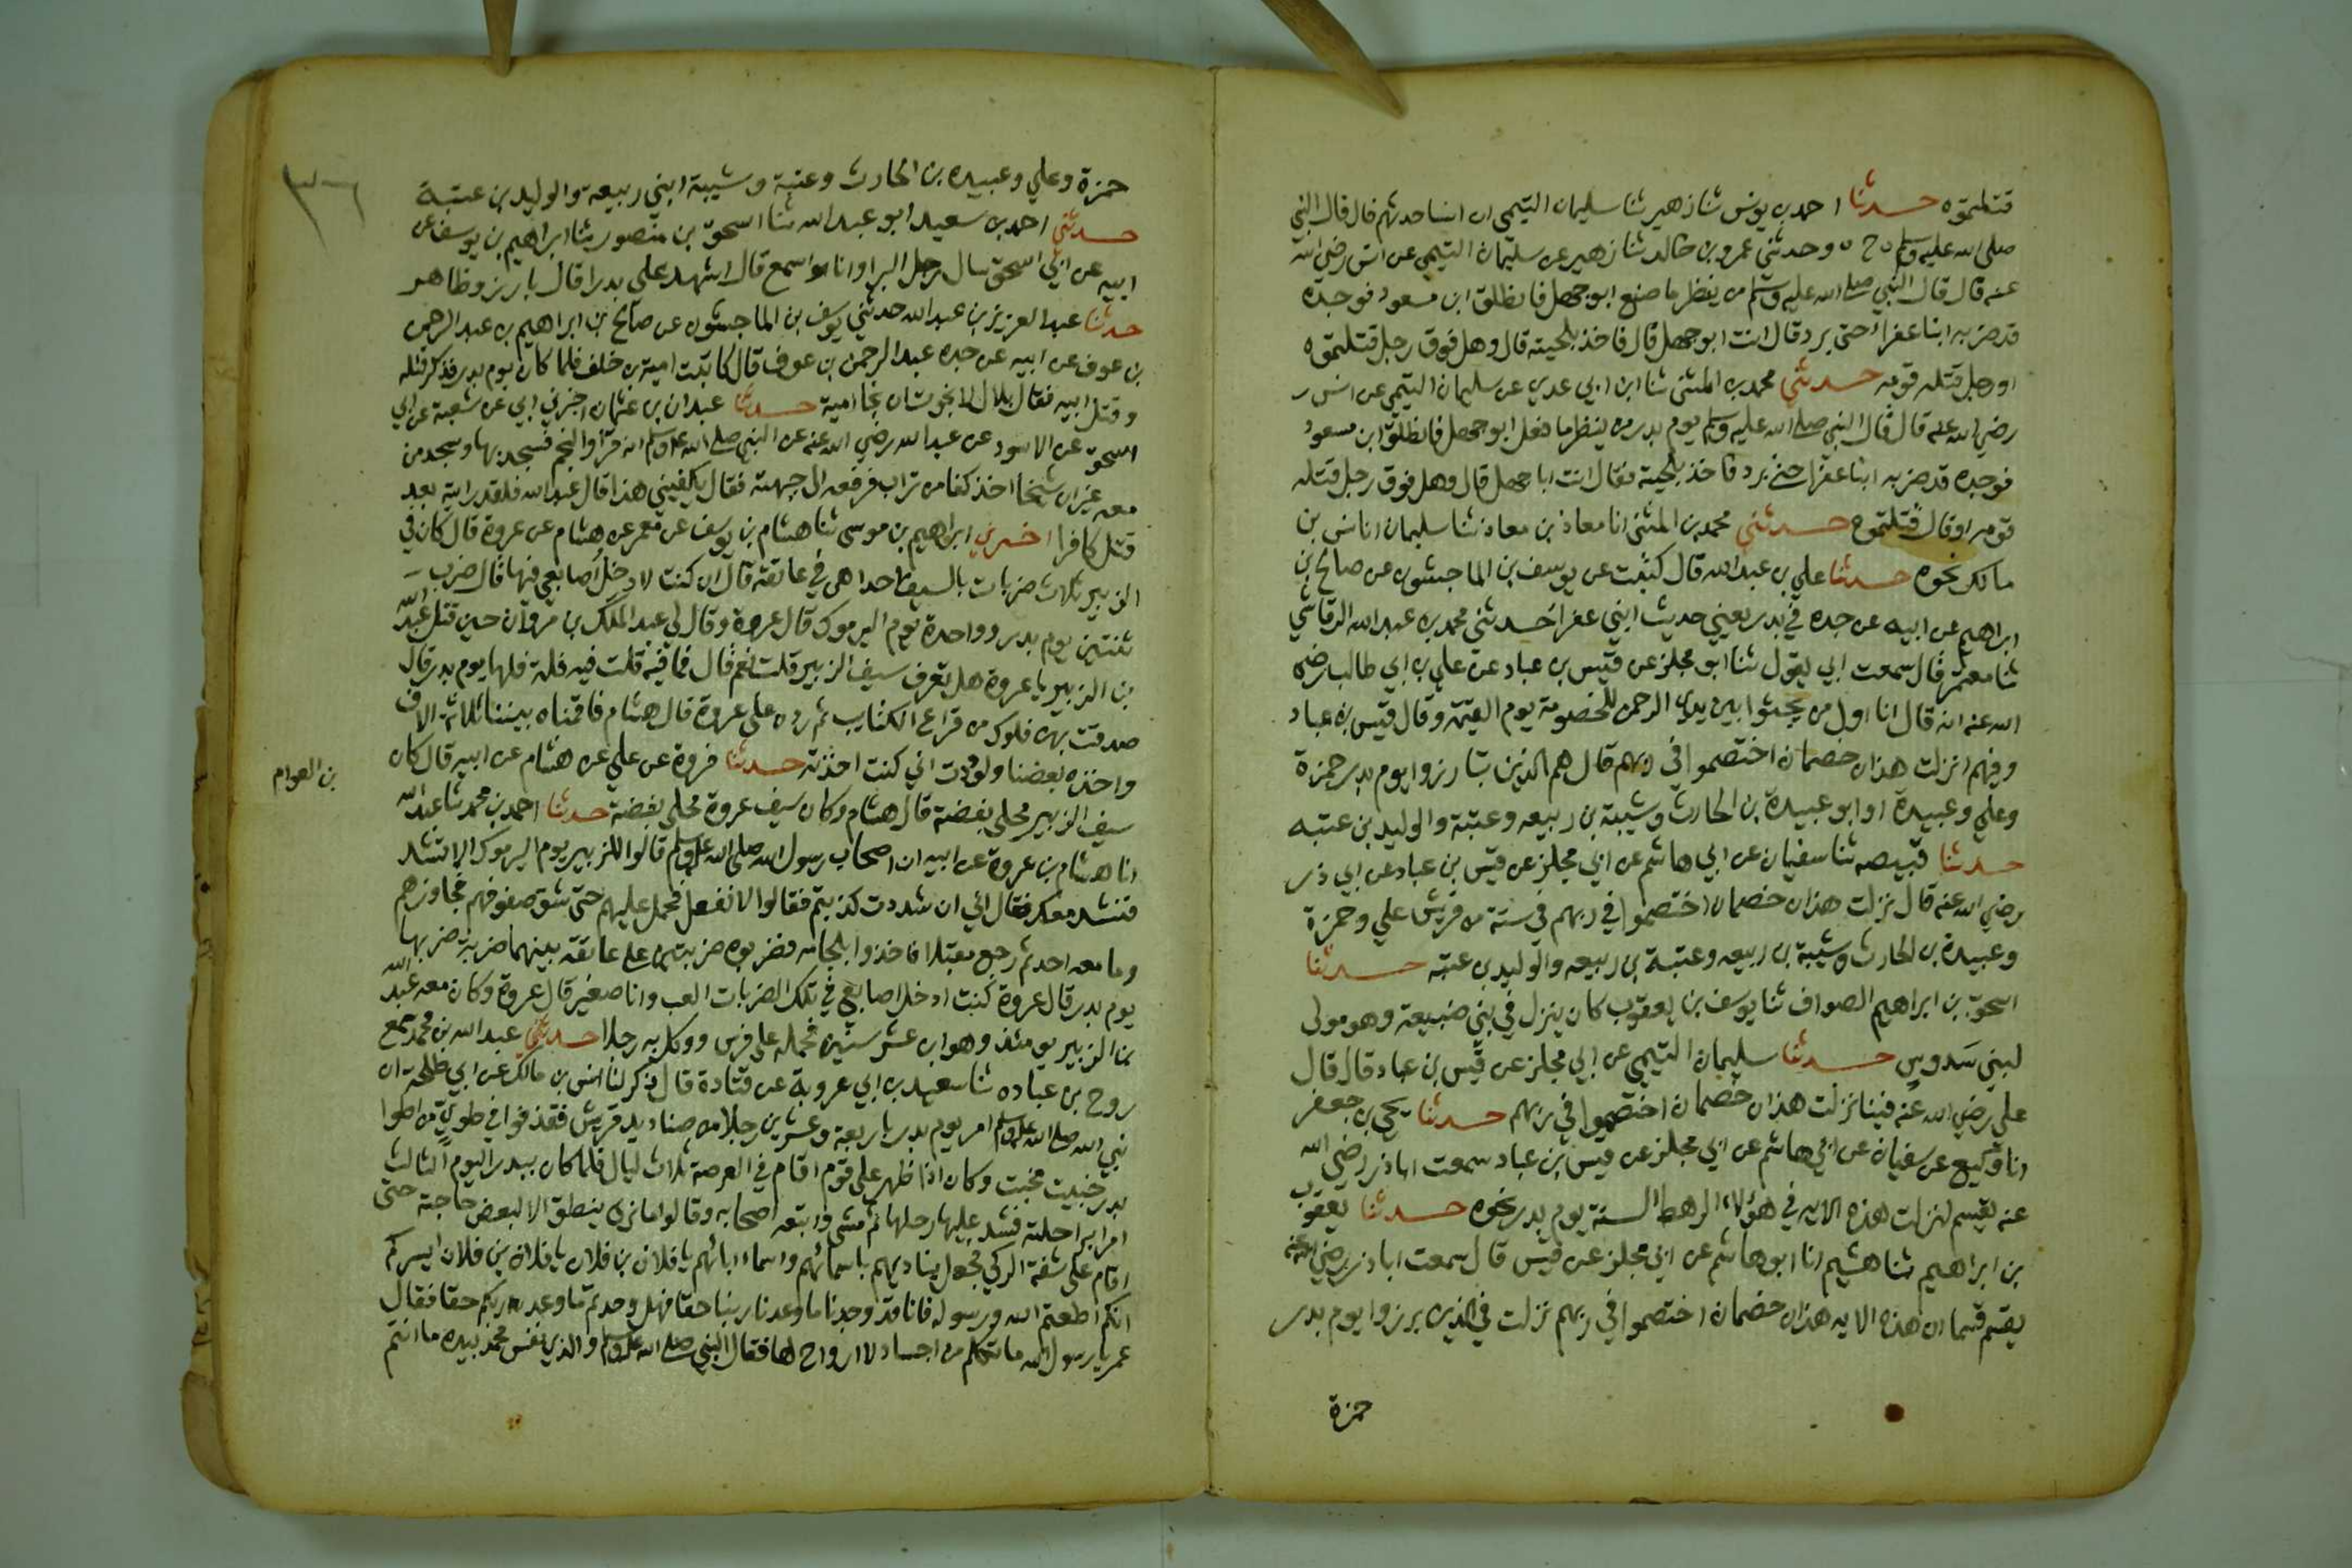 قتلتموه حدثنا احمد بن يونس ثنا زهير ثنا سليمان التيمي ان انسا حدثهم قال قال النبي
صلى الله عليه وسلم ح وحدثني عمرو بن خالد ثنا زهير عن سليمان التيمي عن انس رضي الله
عنه قال قال النبي صلى الله عليه وسلم من ينظر ما صنع ابو جهل فانطلق ابن مسعود فوجده
قد ضربه ابنا عفراء حتى برد قال انت ابو جهل قال فاخذ بلحيته قال وهل فوق رجل قتلتموه
او رجل قتله قومه حدثني محمد بن المثنى ثنا ابن ابي عدي عن سليمان التيمي عن انس
رضي الله عنه قال قال النبي صلى الله عليه وسلم يوم بدر من ينظر ما فعل ابو جهل فانطلق ابن مسعود
فوجده قد ضربه ابنا عفرا حتى برد فاخذ بلحيته فقال انت ابا جهل قال وهل فوق رجل قتله
قومه او قال قتلتموه حدثني محمد بن المثنى انا معاذ بن معاذ ثنا سليمان انا انس بن
مالك نحوه حدثنا علي بن عبد الله قال كتبت عن يوسف بن الماجشون عن صالح بن
ابراهيم عن ابيه عن جده في بدر يعني حديث ابني عفرا حدثني محمد بن عبد الله الرقاشي
ثنا معتمر قال سمعت ابي يقول ثنا ابو مجلز عن قيس بن عباد عن علي بن ابي طالب رضي
الله عنه انه قال انا اول من يجثوا بين يدي الرحمن للخصومة يوم القيمة وقال قيس بن عباد
وفيهم انزلت هذان خصمان اختصموا في ربهم قال هم الذين تبارزوا يوم بدر حمزة
وعلي وعبيدة او ابو عبيدة بن الحارث وشيبة بن ربيعه وعتبة والوليد بن عتبه
حدثنا قبيصه ثنا سفيان عن ابي هاشم عن ابي مجلز عن قيس بن عباد عن ابي ذر
رضي الله عنه قال نزلت هذان خصمان اختصموا في ربهم في ستة من قريش علي وحمزة
وعبيدة بن الحارث وشيبة بن ربيعه وعتبة بن ربيعه والوليد بن عتبه حدثنا
اسحق بن ابراهيم الصواف ثنا يوسف بن يعقوب كان ينزل في بني ضبيعة وهو مولى
لبني سدوس حدثنا سليمان التيمي عن ابي مجلز عن قيس بن عباد قال قال
علي رضي الله عنه فينا نزلت هذان خصمان اختصموا في ربهم حدثنا يحيى بن جعفر
انا وكيع عن سفيان عن ابي هاشم عن ابي مجلز عن قيس بن عباد سمعت ابا ذر رضي الله
عنه يقسم لنزلت هذه الايه في هؤلاء الرهط الستة يوم بدر نحوه حدثنا يعقوب
بن ابراهيم ثنا هشيم انا ابو هاشم عن ابي مجلز عن قيس قال سمعت ابا ذر رضي الله عنه
يقسم قسما ان هذه الايه هذان خصمان اختصموا في ربهم نزلت في الذين برزوا يوم بدر
حمزة
حمزة وعلي وعبيده بن الحارث وعتبة وشيبة ابني ربيعة والوليد بن عتبة
حدثني احمد بن سعيد ابو عبد الله ثنا اسحق بن منصور ثنا ابراهيم بن يوسف عن
ابيه عن ابي اسحق سال رجل البرا وانا اسمع قال اشهد علي بدرا قال بارز وظاهر
حدثنا عبد العزيز بن عبد الله حدثني يوسف بن الماجشون عن صالح بن ابراهيم بن عبد الرحمن
بن عوف عن ابيه عن جده عبد الرحمن بن عوف قال كاتبت امية بن خلف فلما كان يوم بدر فذكر قتله
وقتل ابيه فقال بلال لا نجوت ان نجا امية حدثنا عبدان بن عثمان اخبرني ابي عن شعبة عن ابي
اسحق عن الاسود عن عبد الله رضي الله عنه عن النبي صلى الله عليه وسلم انه قرا والنجم فسجد بها وسجد من
معه غير ان شيخا اخذ كفا من تراب فرفعه الى جبهته فقال يكفيني هذا قال عبد الله فلقد رايته بعد
قتل كافرا اخبرني ابراهيم بن موسى ثنا هشام بن يوسف عن معمر عن هشام عن عروة قال كان في
الزبير ثلاث ضربات بالسيف احداهن في عاتقه قال ان كنت لادخل اصابعي فيها قال ضرب
ثنتين يوم بدر وواحدة يوم اليرموك قال عروة وقال لي عبد الملك بن مروان حين قتل عبد الله
بن الزبير يا عروة هل تعرف سيف الزبير قلت نعم قال فما فيه قلت فيه فلة فلها يوم بدر قال
صدقت بهن فلول من قراع الكتايب ثم رده على عروة قال هشام فاقمناه بيننا ثلاثة الاف
واخذه بعضنا ولوددت اني كنت اخذته حدثنا فروة عن علي عن هشام عن ابيه قال كان
سيف الزبير محلى بفضة قال هشام وكان سيف عروة محلى بفضة حدثنا احمد بن محمد ثنا عبد الله
بن العوام
انا هشام بن عروة عن ابيه ان اصحاب رسول الله صلى الله عليه وسلم قالوا للزبير يوم اليرموك الا تشد
فنشد معك فقال اني ان شددت كذبتم فقالوا لا نفعل فحمل عليهم حتى شق صفوفهم فجاوزهم
وما معه احد ثم رجع مقبلا فاخذوا بلجامه فضربوه ضربتين على عاتقه بينهما ضربة ضربها
يوم بدر قال عروة كنت ادخل اصابعي في تلك الضربات العب وانا صغير قال عروة وكان معه عبد الله
بن الزبير يومئذ وهو ابن عشر سنين فحمله على فرس ووكل به رجلا حدثني عبد الله بن محمد سمع
روح بن عباده ثنا سعيد بن ابي عروبة عن قتادة قال ذكر لنا انس بن مالك عن ابي طلحة ان
نبي الله صلى الله عليه وسلم امر يوم بدر باربعة وعشرين رجلا من صناديد قريش فقذفوا في طوي من اطوا
بدر خبيث مخبث وكان اذا ظهر على قوم اقام في العرصة ثلاث ليال فلما كان ببدر اليوم الثالث
امر براحلته فشد عليها رحلها ثم مشى واتبعه اصحابه وقالوا ما نرى ينطلق الا لبعض حاجته حتى
اقام على شفة الركي فجعل يناديهم باسمائهم واسماء ابائهم يا فلان بن فلان يا فلان بن فلان ايسركم
انكم اطعتم الله ورسوله فانا قد وجدنا ما وعدنا ربنا حقا فهل وجدتم ما وعد ربكم حقا فقال
عمر يا رسول الله ما تكلم من اجساد لا ارواح لها فقال النبي صلى الله عليه وسلم والذي نفس محمد بيده ما انتم